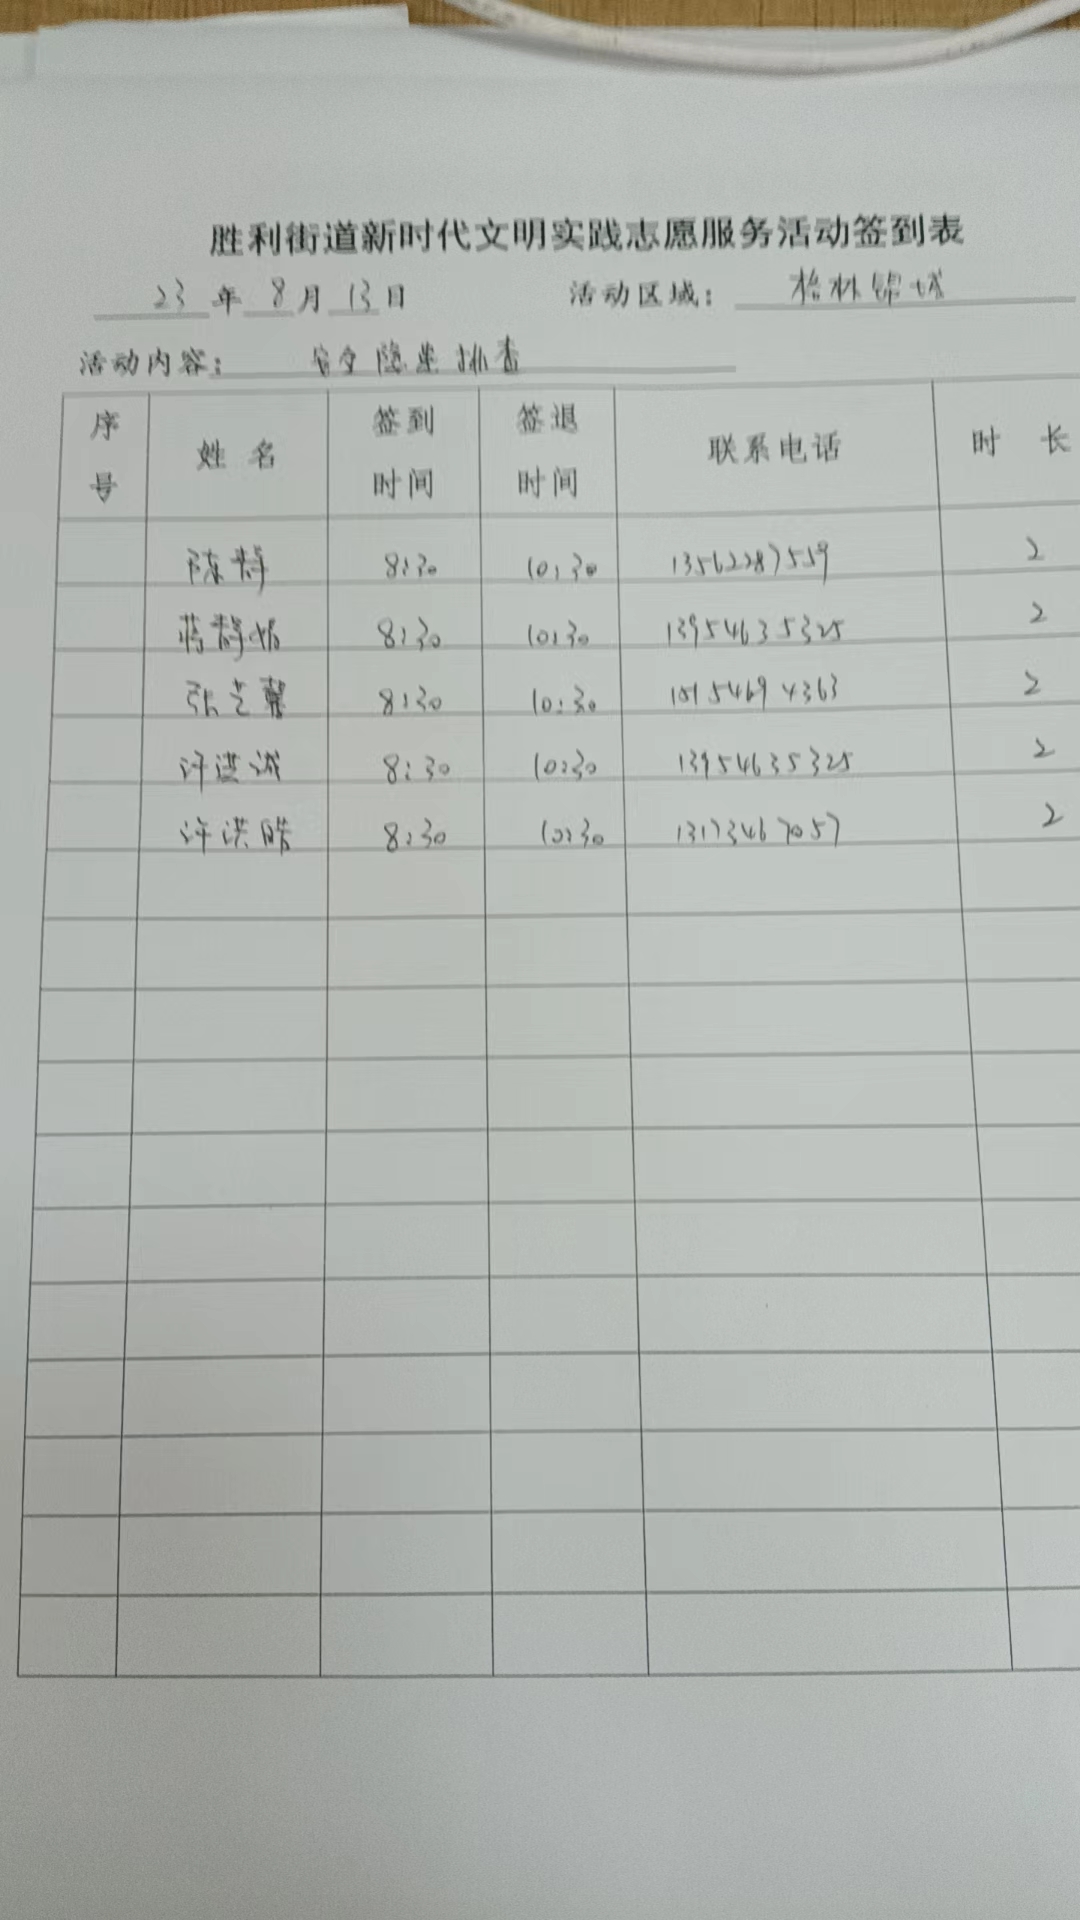 胜利街道新时代文明实践志愿服务活动签到表
23 年 8 月 13 日 活动区域： 梧林锦城
活动内容： 安全隐患排查
序号 姓名 签到时间 签退时间 联系电话 时长
陈静 8:30 10:30 13562287559 2
蒋静怡 8:30 10:30 13954635325 2
张艺馨 8:30 10:30 15154694363 2
许洪诚 8:30 10:30 13954635325 2
许洪皓 8:30 10:30 13173467057 2